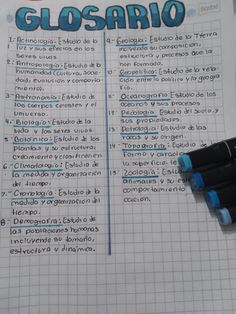 GLOSARIO
1- Actinología: Estudio de la
luz y sus efectos en los
seres vivos.
2- Antropología: Estudio de la
humanidad (cultura, socie-
dad, evolución y comporta-
miento).
3- Astronomía: Estudio de
los cuerpos celestes y el
universo.
4- Biología: Estudio de la
vida y los seres vivos.
5- Botánica: Estudio de las
plantas y su estructura,
crecimiento y clasificación.
6- Climatología: Estudio de
la medida y organización
del tiempo.
7- Cronología: Estudio de la
medida y organización del
tiempo.
8- Demografía: Estudio de
las poblaciones humanas
incluyendo su tamaño,
estructura y dinámica.
9- Geología: Estudio de la Tierra
incluyendo su composición,
estructura y procesos que la
han formado.
10 Geopolítica: Estudio de la rela-
ción entre la política y la geogra-
fía.
11- Oceanografía: Estudio de los
océanos y sus procesos
12- Pedología: Estudio del suelo, y
sus propiedades.
13- Petrología: Estudio de las
rocas y su origen.
14- Topografía:
forma y
la superficie
15- Zoología: Estudio
animales y su
comportamiento